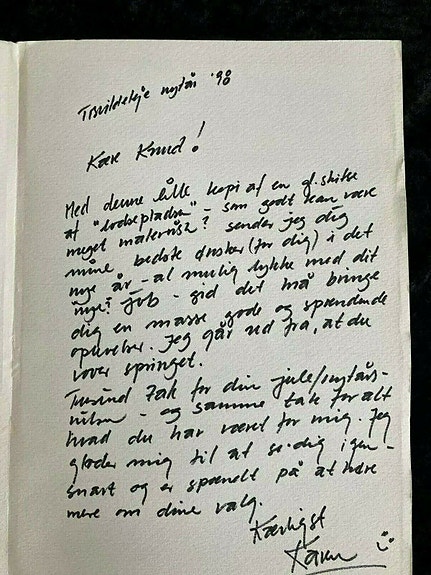 Tisvildeleje nytår '90
Kære Knud!
Med denne lille kopi af en gl. skitse
af "lodsepladsen" - som godt kan være
meget malerisk? sender jeg dig
mine bedste ønsker (for dig) i det
nye år - al mulig lykke med dit
"nye" job - gid det må bringe
dig en masse gode og spændende
oplevelser. Jeg går ud fra, at du
vover springet.
Tusind Tak for din jule/nytårs-
hilsen - og samme tak for alt
hvad du har været for mig. Jeg
glæder mig til at se dig igen -
snart og er spændt på at høre
mere om dine valg.
Kærligst
Karen